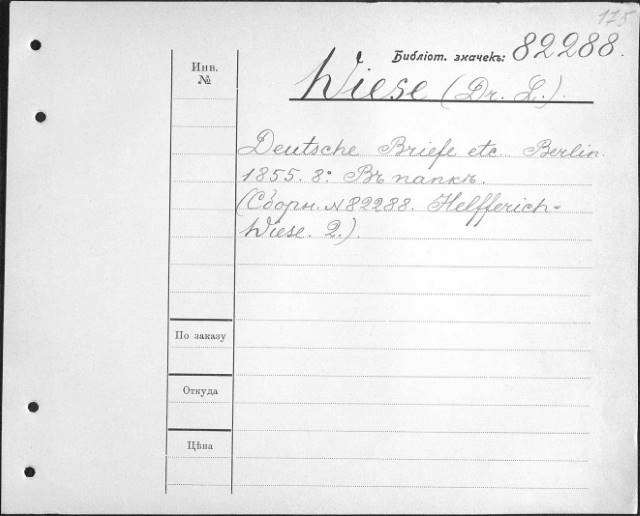 125
Библіот. значекъ: 82288.
Инв. №
Wiese (Dr. L.).
Deutsche Briefe etc. Berlin.
1855. 8° Въ папкѣ.
(Сборн. №82288. Helfferich-
Wiese. 2.).
По заказу
Откуда
Цѣна